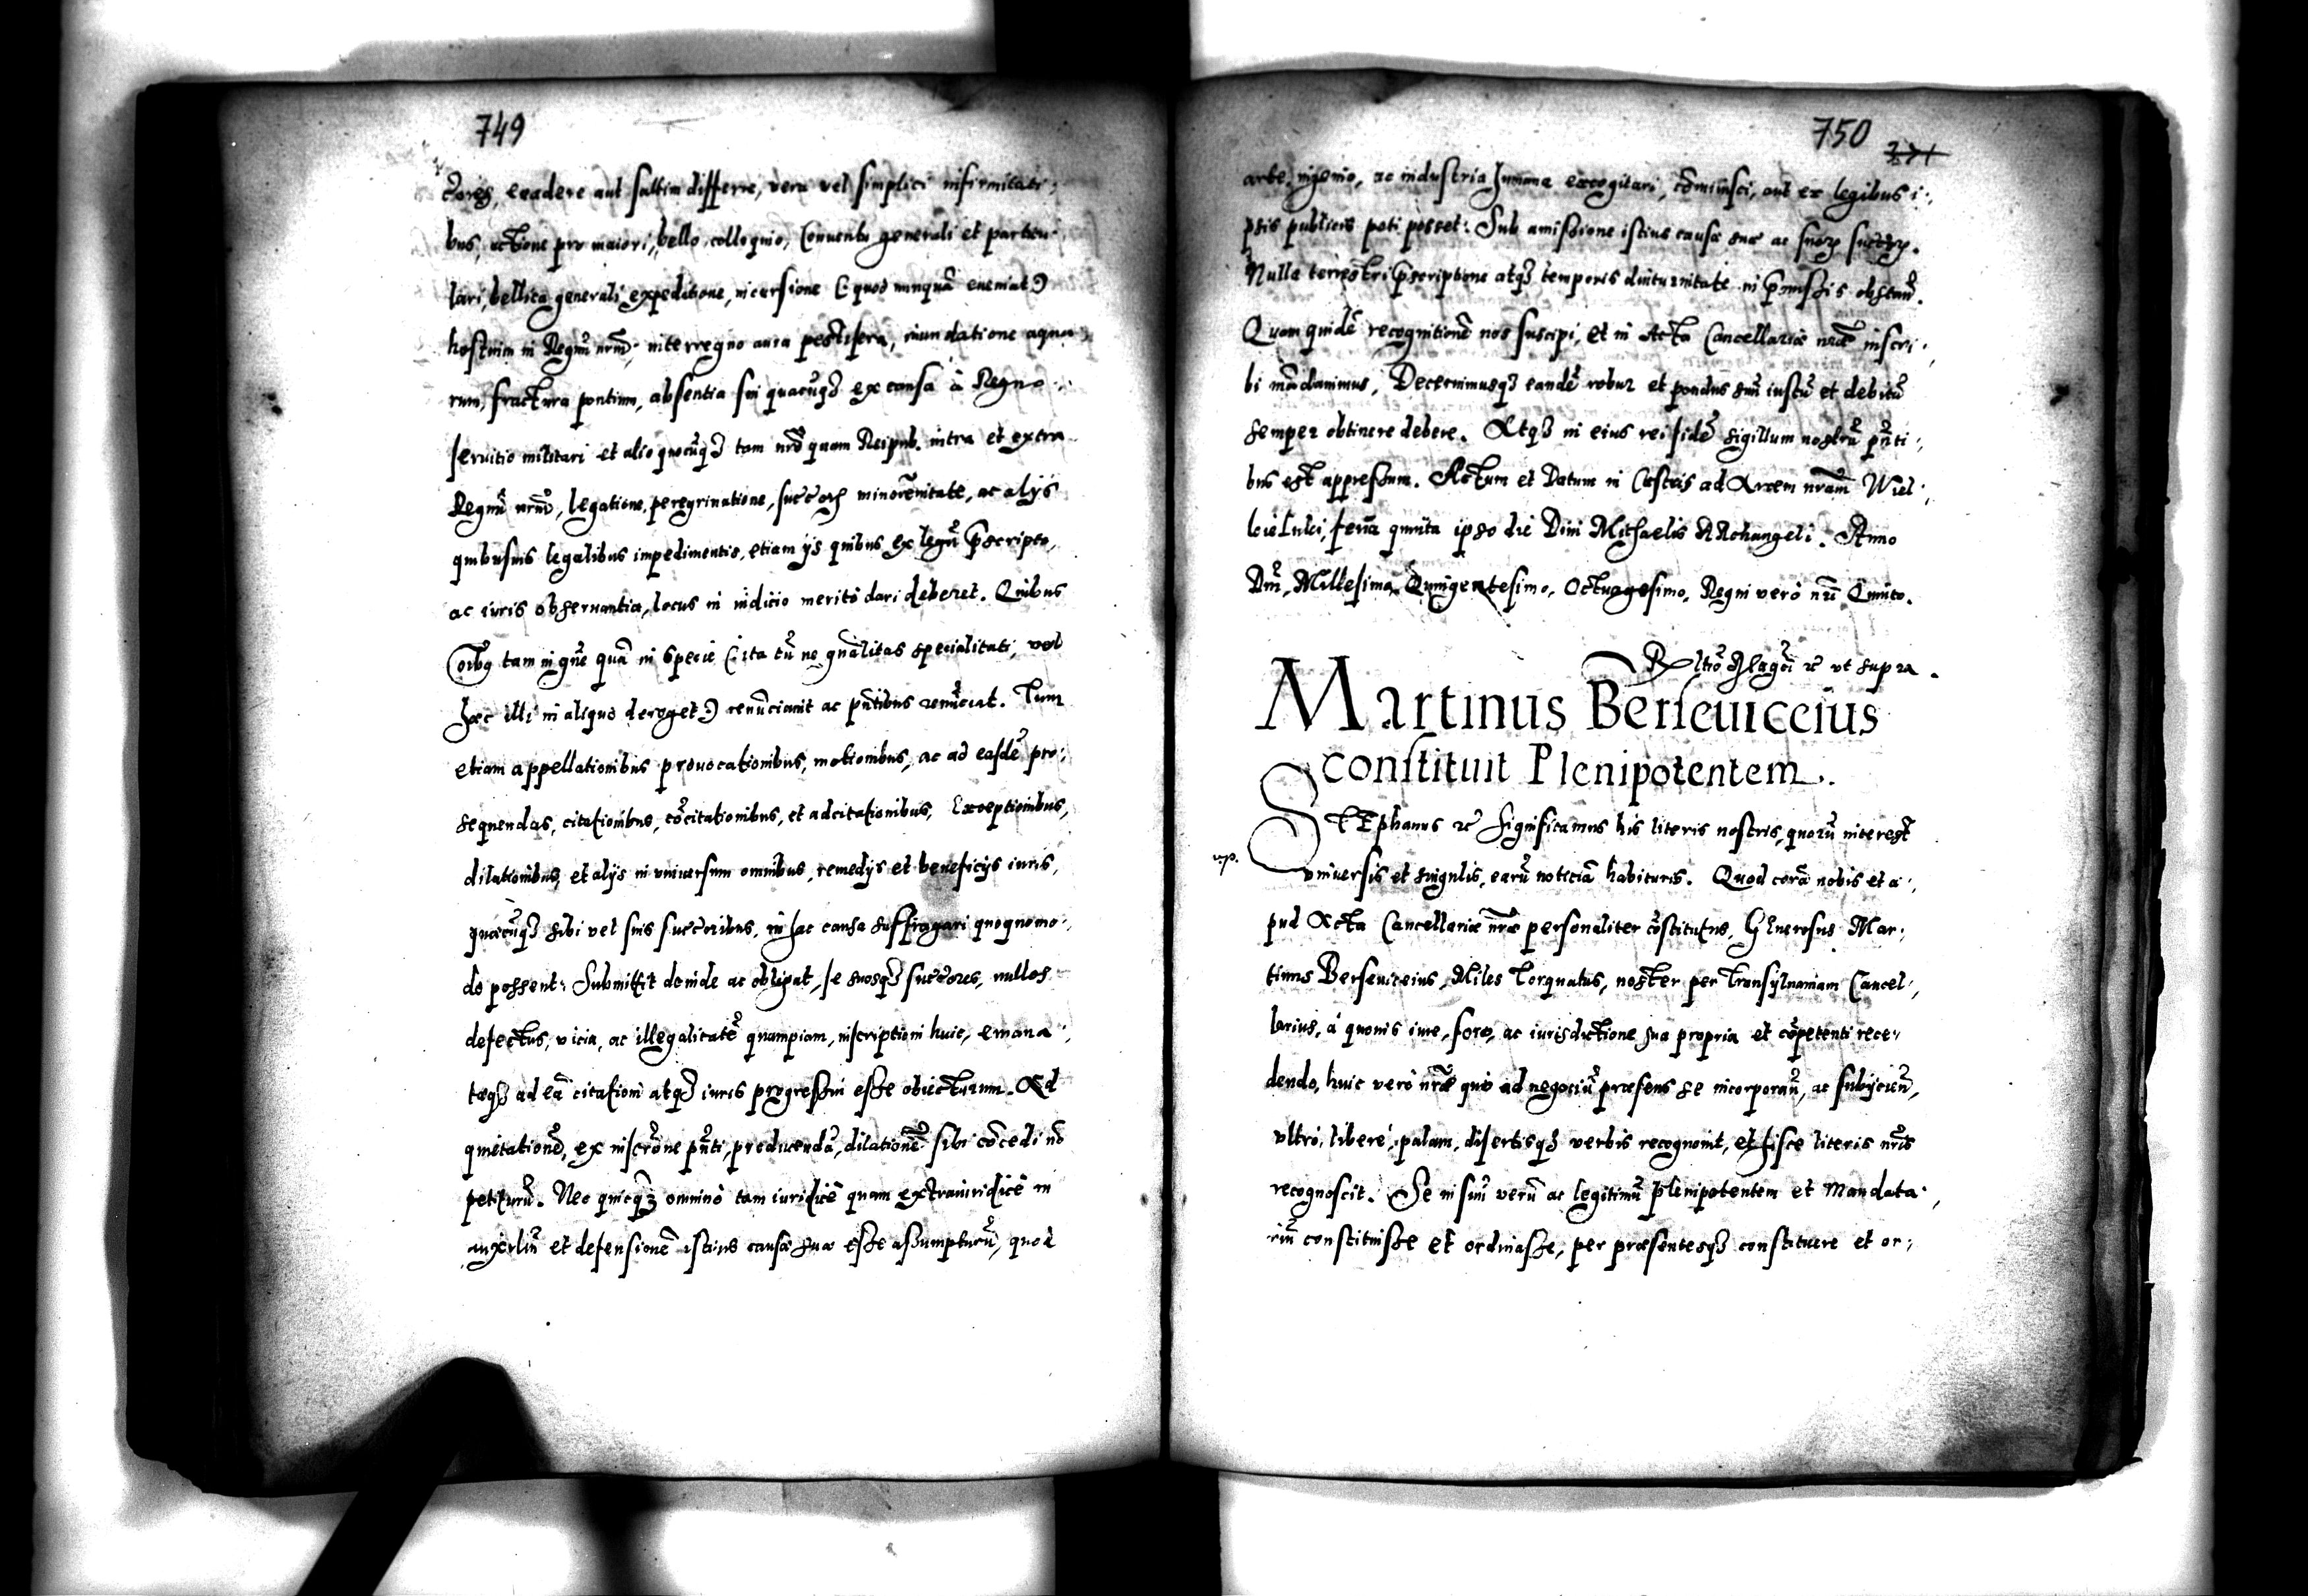 749
ctores, euadere aut saltim differre, vera vel simplici infirmitati:
bus, actione pro maiori, bello, colloquio, Conuentu generali et particu:
lari, bellica generali expeditione, incursione (: quod nunquã eueniat:)
hostium in Regnũ nrm̃, interregno aura pestifera, inundatione aqua:
rum, fractura pontium, absentia sui quacũqȝ ex causa à Regno:
seruitio militari et alio quocũqȝ tam nrõ quam Reipub. intra et extra
Regnũ nrm̃, legatione, peregrinatione, succorȝ minorẽnitate, ac alys
quibusuis legalibus impedimentis, etiam ys quibus ex legũ p̃scripto,
ac iuris obseruantia, locus in iudicio meritò dari deberet. Quibus
oĩbq tam in gñe quã in specie (: ita tũ ne gñalitas specialitati, vel
hæc illi in aliquo deroget:) renũciauit ac pñtibus renũciat. Tum
etiam appellationibus prouocationibus, motionibus, ac ad easdẽ pro:
sequendas, citationibus, cõcitationibus, et adcitationibus, Exceptionibus,
dilationibus, et alys in vniuersum omnibus, remedys et beneficys iuris,
quæcũqȝ sibi vel suis succõribus, in hac causa suffragari quoquomo:
do possent: Submittit deinde ac obligat, se suosqȝ succõres, nullos
defectus, vicia, ac illegalitatẽ quampiam, inscriptioni huic, emana:
tæqȝ ad eã citationi atqȝ iuris progressui esse obiecturum. Ad
quietationẽ, ex inscrõne pñti, producendã, dilationẽ sibi cõcedi nõ
petiturũ. Nec quicqȝ omninò tam iuridicè quam extraiuridicè in
auxiliũ et defensionẽ istius causæ suæ esse assumpturũ, quod
750
arte, ingenio, ac industria humana excogitari, cõminisci, aut ex legibus i:
psis publicis peti posset: Sub amissione istius causæ suæ ac suorȝ succrȝ.
Nulla terrestri p̃scriptione atqȝ temporis diuturnitate in p̃missis obstan̄.
Quam quidẽ recognitionẽ nos suscipi, et in Acta Cancellariæ nræ̃ inscri:
bi mãdauimus, Decernimusqȝ eandẽ robur et pondus suũ iustũ et debitũ
semper obtinere debere. Atqȝ in eius rei fidẽ sigillum nostrũ pñti:
bus est appressum. Actum et Datum in Castris ad Arcem nram̃ Wiel:
kie Luki, feria quinta ipso die Diui Michaelis ARchangeli. Anno
Dnĩ, Millesimo, Quingentesimo, Octuagesimo, Regni verò nrĩ Quinto.
ut supra.
Martinus Berseuiceius
constituit Plenipotentem.
STEphanus &c Significamus his literis nostris, quorũ interest
vniuersis et singulis, earũ noticiã habituris. Quod corã nobis et a:
pud Acta Cancellariæ nræ̃ personaliter cõstitutus, GEnerosus Mar:
tinus Berseuiceius, Miles Torquatus, noster per Transyluaniam Cancel:
larius, à quouis iure, foro, ac iurisdictione sua propria et cõpetenti rece:
dendo, huic verò nræ̃ quò ad negociũ præsens se incorporan̄, ac subycien̄,
vltrò, liberè, palam, disertisqȝ verbis recognouit, et hisce literis nr̃is
recognoscit. Se in suũ verũ ac legitimũ plenipotentem et Mandata:
riũ constituisse et ordinasse, per præsentesqȝ constituere et or: